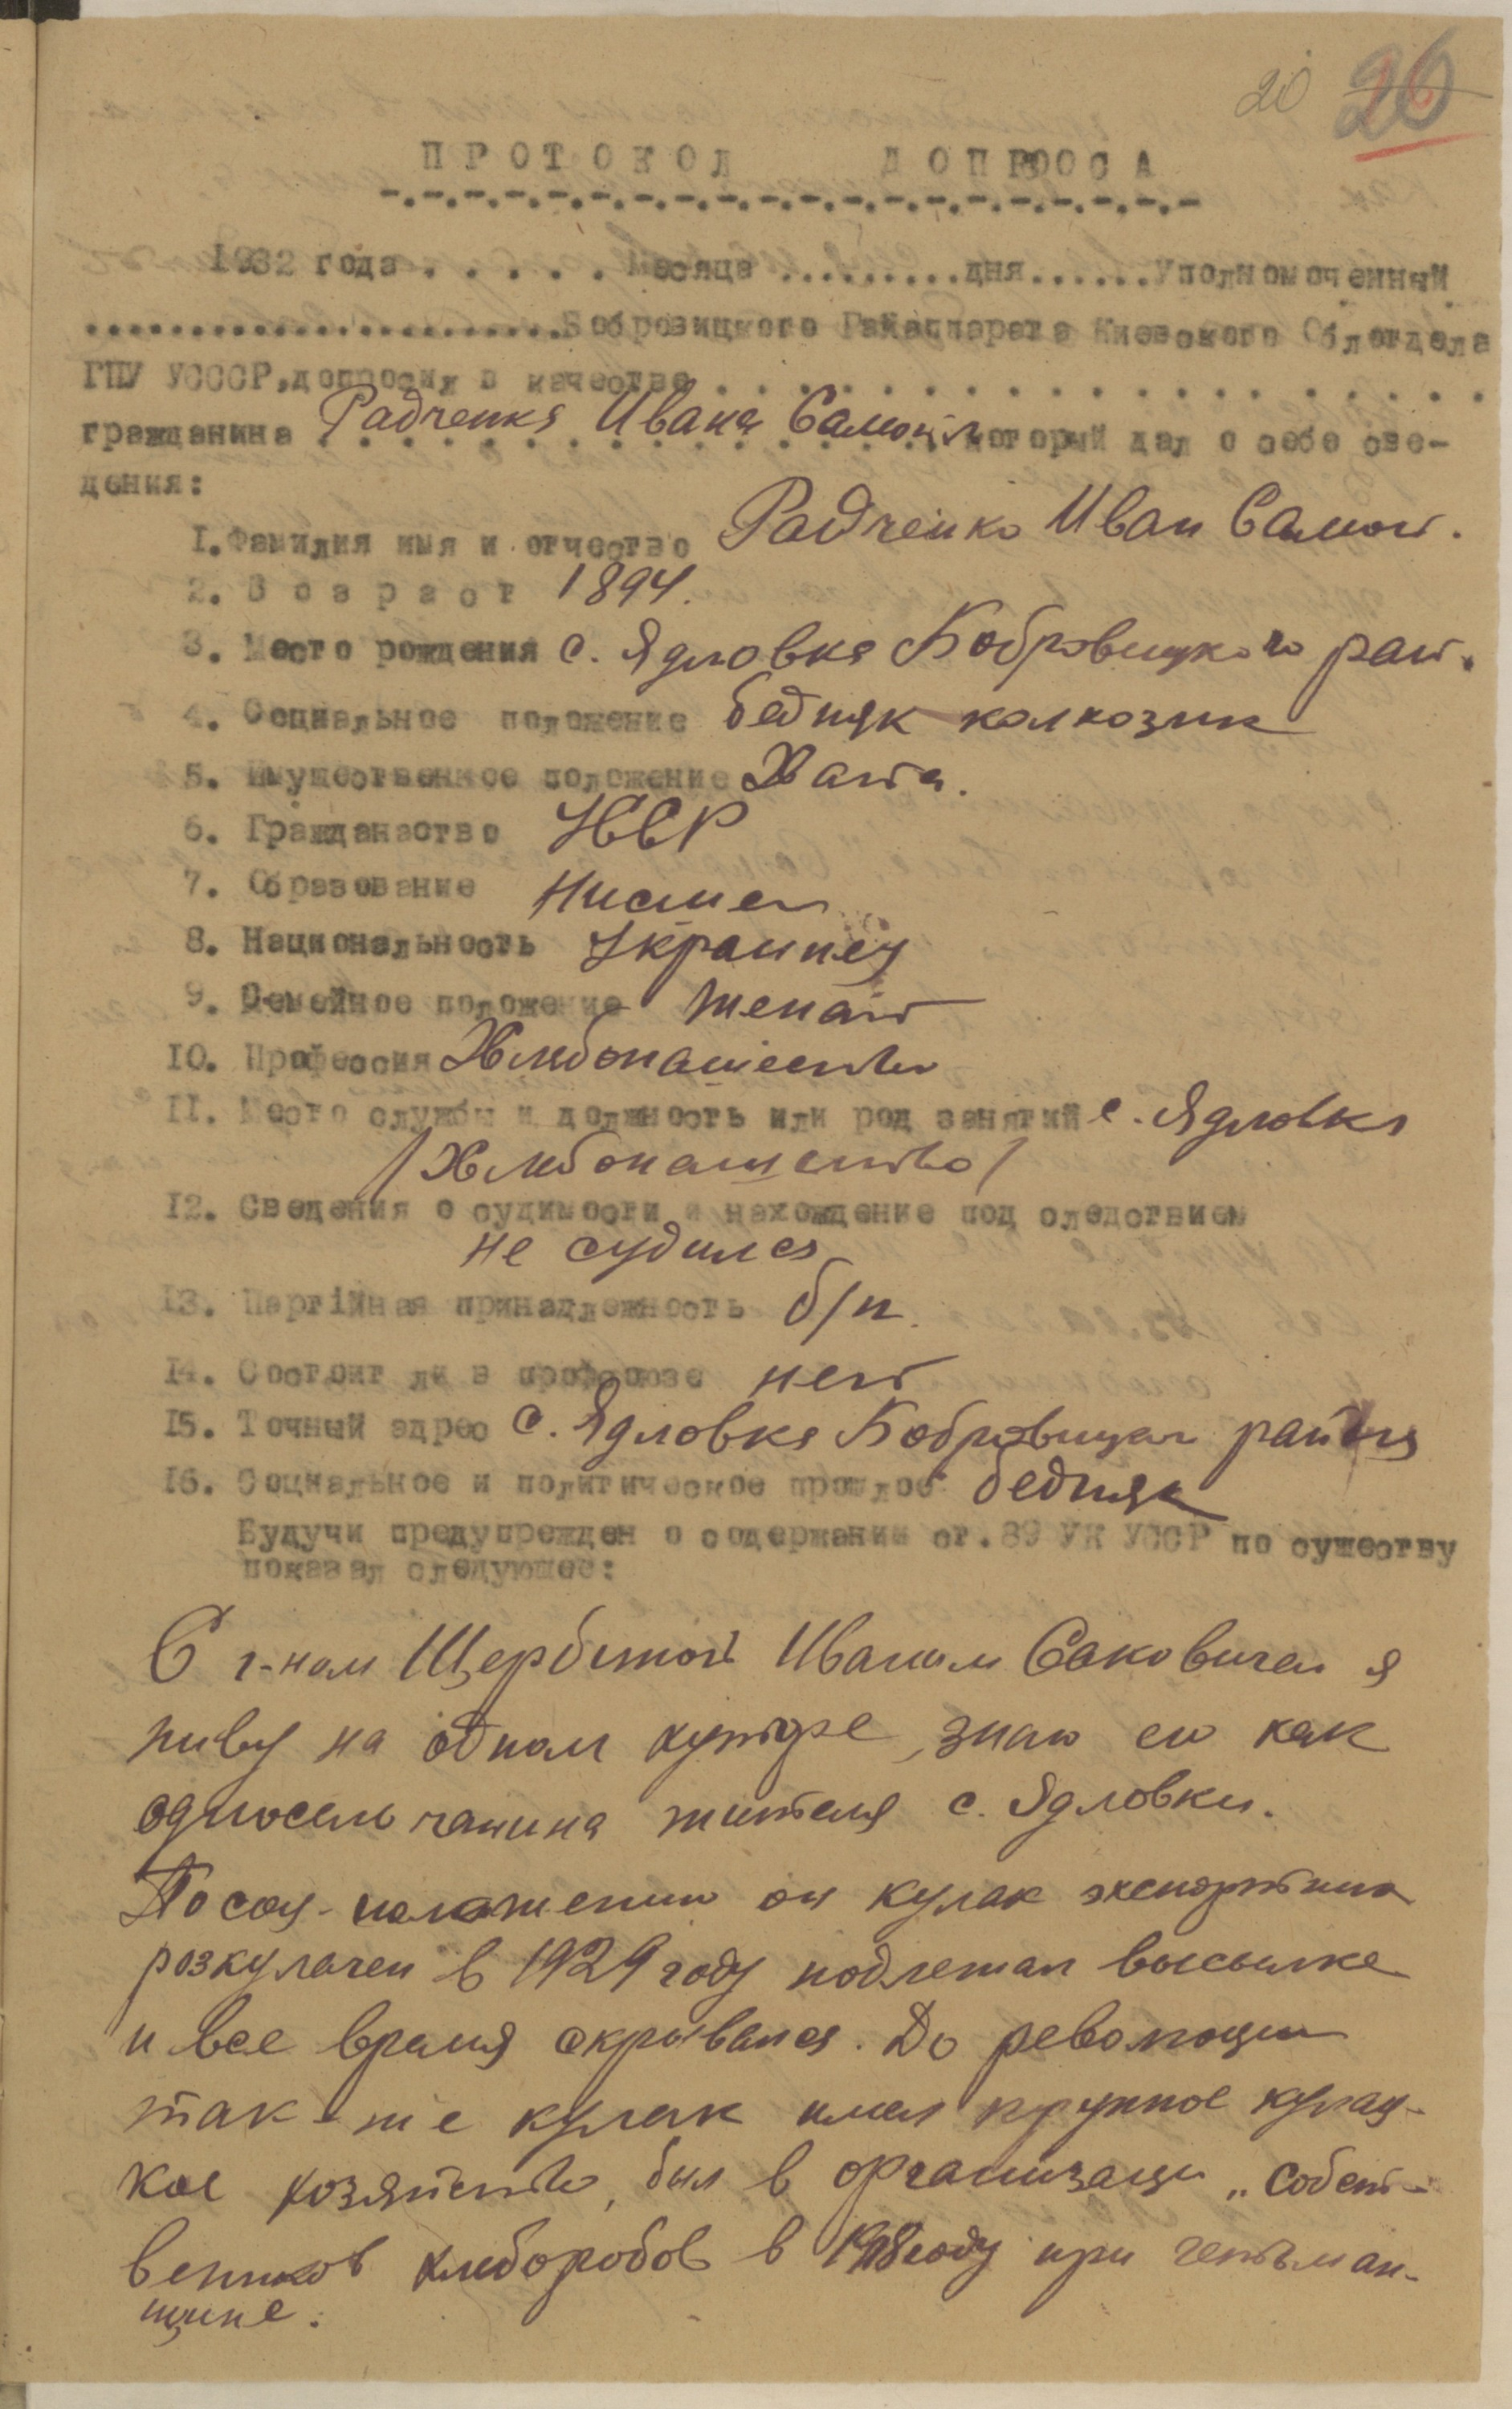 20 26
ПРОТОКОЛ ДОПРОСА
1932 года . . . . . . Месяца .........дня......Уполномоченный
.......................Бобровицкого Райаппарата Киевского Облотдела
ГПУ УСССР,допросил в качестве . . . . . . . . . . . . . . . . . . .
гражданина Радченка Ивана Самойл который дал о себе све-
дения:
1.Фамилия имя и отчество Радченко Иван Самой.
2. Возраст 1894.
3. Место рождения с. Ядловка Бобровицкого рай.
4. Социальное положение бедняк колхозник
5. Имущественное положение Хата.
6. Гражданаство УССР
7. Образование Нисшее
8. Национальность Украинец
9. Семейное положение женат
10. Профессия Хлебопашество
11. Место службы и должность или род занятий с. Ядловка
/Хлебопашество/
12. Сведения о судимости и нахождение под следствием
не судился
13. Партійная принадлежность б/п.
14. Состоит ли в профсоюзе нет
15. Точный адрес с. Ядловка Бобровицкая района
16. Социальное и политическое прошлое бедняк
Будучи предупрежден о содержании ст. 89 УК УССР по существу
показал следующее:
С г-ном Щербиной Иваном Саковичем я
живу на одном хуторе, знаю его как
односельчанина жителя с. Ядловки.
По соц-положению он кулак экспертник
розкулачен в 1929 году подлежал высылке
и все время скрывался. До революции
так-же кулак имел крупное кулац-
кое хозяйство, был в организации „собст-
венников хлеборобов в 1918 году при гетьман-
щине.